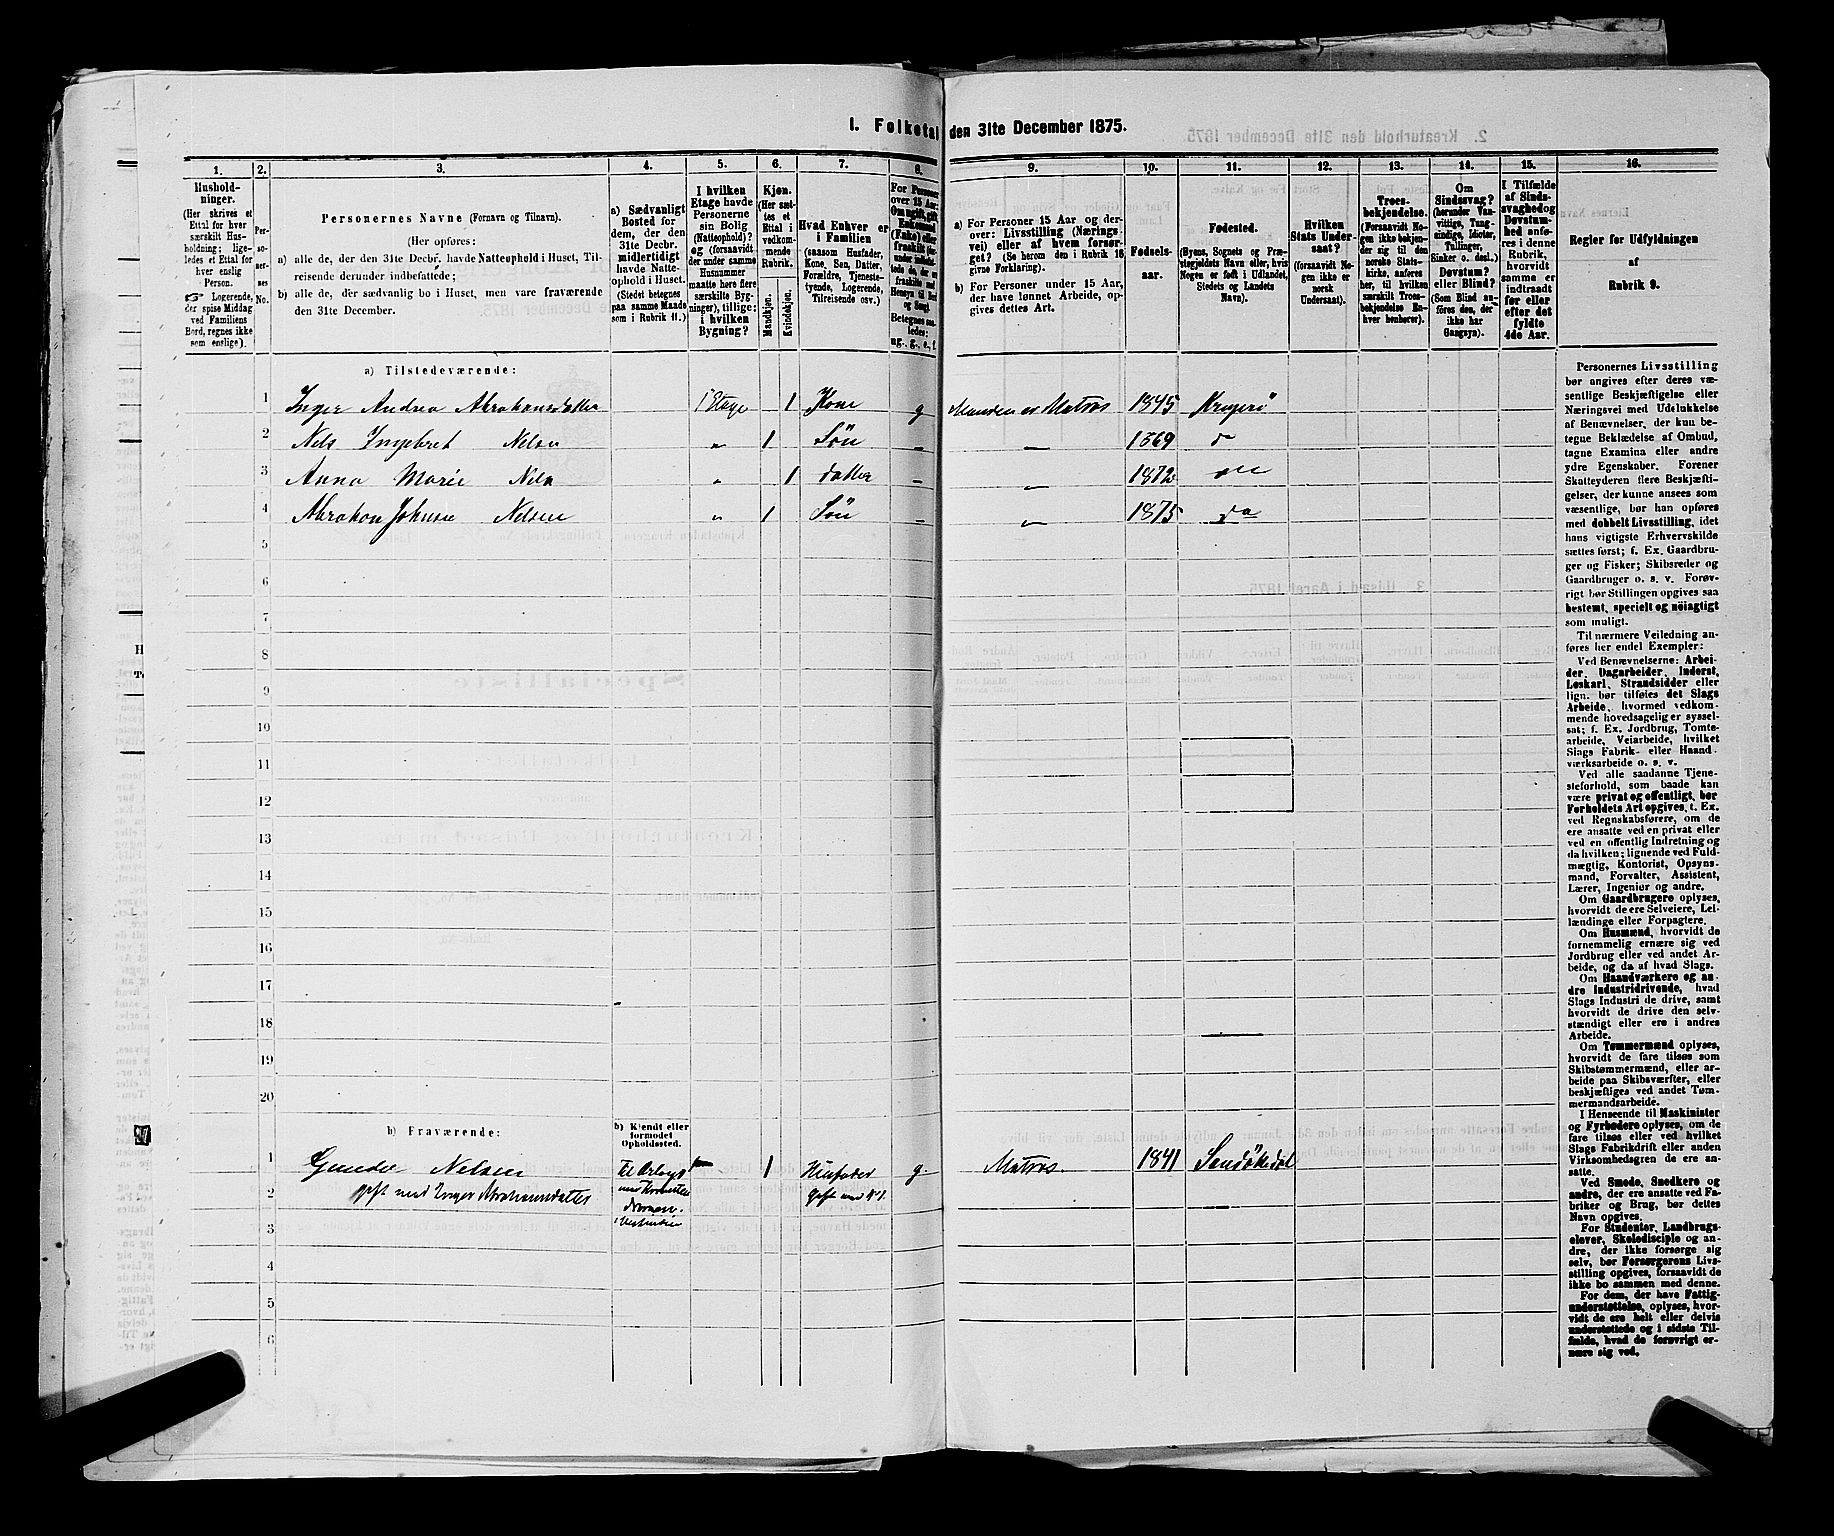 1. Folketal den 31te December 1875.
1. 2. 3. 4. 5. 6. 7. 8. 9. 10. 11. 12. 13. 14. 15. 16.
Husholdninger.
(Her skrives et
Ettal for hver
særskilt Husholdning;
ligeledes et Ettal for
hver enslig
Person.
☞ Logerende,
der spise Middag
ved Familiens
Bord, regnes ikke
som enslige).
Personernes No.
Personernes Navne (Fornavn og Tilnavn).
(Her opføres:
a) alle de, der den 31te Decbr. havde Natteophold i Huset, Tilreisende derunder indbefattede;
b) alle de, der sædvanlig bo i Huset, men vare fraværende
den 31te December.
a) Sædvanligt
Bosted for
dem, der den
31te Decbr.
midlertidigt
havde Natteophold i Huset.
(Stedet betegnes
paa samme Maade
som i Rubrik 11.)
I hvilken
Etage havde
Personerne
sin Bolig
(Natteophold)?
og (forsaavidt
der under samme
Husnummer
maatte høre flere
særskilte Bygninger), tillige:
i hvilken
Bygning?
Kjøn.
(Her sættes et
Ettal i
vedkommende
Rubrik.
Mandkjøn.
Kvindekjøn.
Hvad Enhver er
i Familien
(saasom Husfader,
Kone, Søn, Datter,
Forældre, Tjenestetyende, Logerende,
Tilreisende osv.)
For Personer
over 15 Aar:
Om ugift, gift,
Enkemand
(Enke) eller
fraskilt
Betegnes saaledes:
ug., g., e., f.
a) For Personer 15 Aar og derover: Livsstilling (Næringsvei) eller af hvem forsørget? (Se herom den i Rubrik 16
givne Forklaring).
b) For Personer under 15 Aar,
der have lønnet Arbeide, opgives dettes Art.
Fødselsaar.
Fødested.
(Byens, Sognets og Præstegjeldets Navn eller, hvis
Nogen er født i Udlandet,
Stedets og Landets
Navn).
Hvilken
Stats Undersaat?
(forsaavidt Nogen ikke er
norsk
Undersaat).
Troesbekjendelse.
(Forsaavidt Nogen ikke bekjender sig til den
norske Statskirke, anføres
her, til hvilket
særskilt Troesbekjendelse Enhver henhører).
Om
Sindssvag?
(herunder Vanvittige, Tungsindige, Idioter,
Tullinger,
Sinker o. desl.)
Døvstum?
eller Blind?
(Som Blind anføres den, der
ikke har
Gangsyn).
I Tilfælde
af Sindssvaghed og
Døvstumhed anføres i denne
Rubrik,
hvorvidt
samme er
indtraadt
før eller
efter det
fyldte
4de Aar.
Regler for Udfyldningen
af
Rubrik 9.
a) Tilstedeværende:
1 Inger Andrea Abrahamsdatter 1 Etage 1 Kone g Manden er Matros 1845 Kragerö
2 Nels Ingebret Nelsen „ 1 Sön – „ 1869 do
3 Anna Marie Nels „ 1 datter – „ 1872 do
4 Abraham Johnsen Nelsen „ 1 Sön – „ 1875 do
5
6
7
8
9
10
11
12
13
14
15
16
17
18
19
20
b) Fraværende:
b) Kjendt eller
formodet
Opholdssted.
1 Gunder Nelsen 1 Husfader g. Matros. 1841 Sandökedal
2 gift med Inger Abrahamsdatter gift med N 1.
3
4
5
6
Personernes Livsstilling
bør angives efter deres væsentlige Beskjæftigelse eller
Næringsvei med Udelukkelse
af Benævnelser, der kun betegne Beklædelse af Ombud,
tagne Examina eller andre
ydre Egenskaber. Forener
Skatteyderen flere Beskjæftigelser, der kunne ansees som
væsentlige, bør han opføres
med dobbelt Livsstilling, idet
hans vigtigste Erhvervskilde
sættes først; f. Ex. Gaardbruger og Fisker; Skibsreder og
Gaardbruger o. s. v. Forøvrigt bør Stillingen opgives saa
bestemt, specielt og nøiagtigt
som muligt.
Til nærmere Veiledning anføres her endel Exempler:
Ved Benævnelserne: Arbeider, Dagarbeider, Inderst,
Løskarl, Strandsidder eller
lign. bør tilføies det Slags
Arbeide, hvormed vedkommende hovedsagelig er sysselsat; f. Ex. Jordbrug, Tomtearbeide, Veiarbeide, hvilket
Slags Fabrik- eller Haandværksarbeide o. s. v.
Ved alle saadanne Tjenesteforhold, som baade kan
være privat og offentligt, bør
Forholdets Art opgives, t. Ex.
ved Regnskabsførere, om de
ere ansatte ved en privat eller
ved en offentlig Indretning og
da hvilken; lignende ved Fuldmægtig, Kontorist, Opsynsmand, Forvalter, Assistent,
Lærer, Ingeniør og andre.
Om Gaardbrugere oplyses,
hvorvidt de ere Selveiere, Leilændinge eller Forpagtere.
Om Husmænd, hvorvidt de
fornemmelig ernære sig ved
Jordbrug eller ved andet Arbeide, og da af hvad Slags.
Om Haandværkere og andre Industridrivende, hvad
Slags Industri de drive, samt
hvorvidt de drive den selvstændigt eller ere i andres
Arbeide.
Om Tømmermænd oplyses,
hvorvidt de fare tilsøs som
Skibstømmermænd, eller arbeide paa Skibsværfter, eller
beskjæftiges ved andet Tømmermandsarbeide.
I Henseende til Maskinister
og Fyrbødere oplyses, om de
fare tilsøs eller ved hvilket
Slags Fabrikdrift eller anden
Virksomhedsgren de ere ansatte.
Ved Smede, Snedkere og
andre, der ere ansatte ved Fabriker og Brug, bør dettes
Navn opgives.
For Studenter, Landbrugselever, Skoledisciple og andre, der ikke forsørge sig
selv, bør Forsørgerens Livsstilling opgives, forsaavidt de
ikke bo sammen med denne.
For dem, der have Fattigunderstøttelse, oplyses, hvorvidt de ere helt eller delvis
understøttede og i sidste Tilfælde, hvad de forøvrigt ernære sig ved.